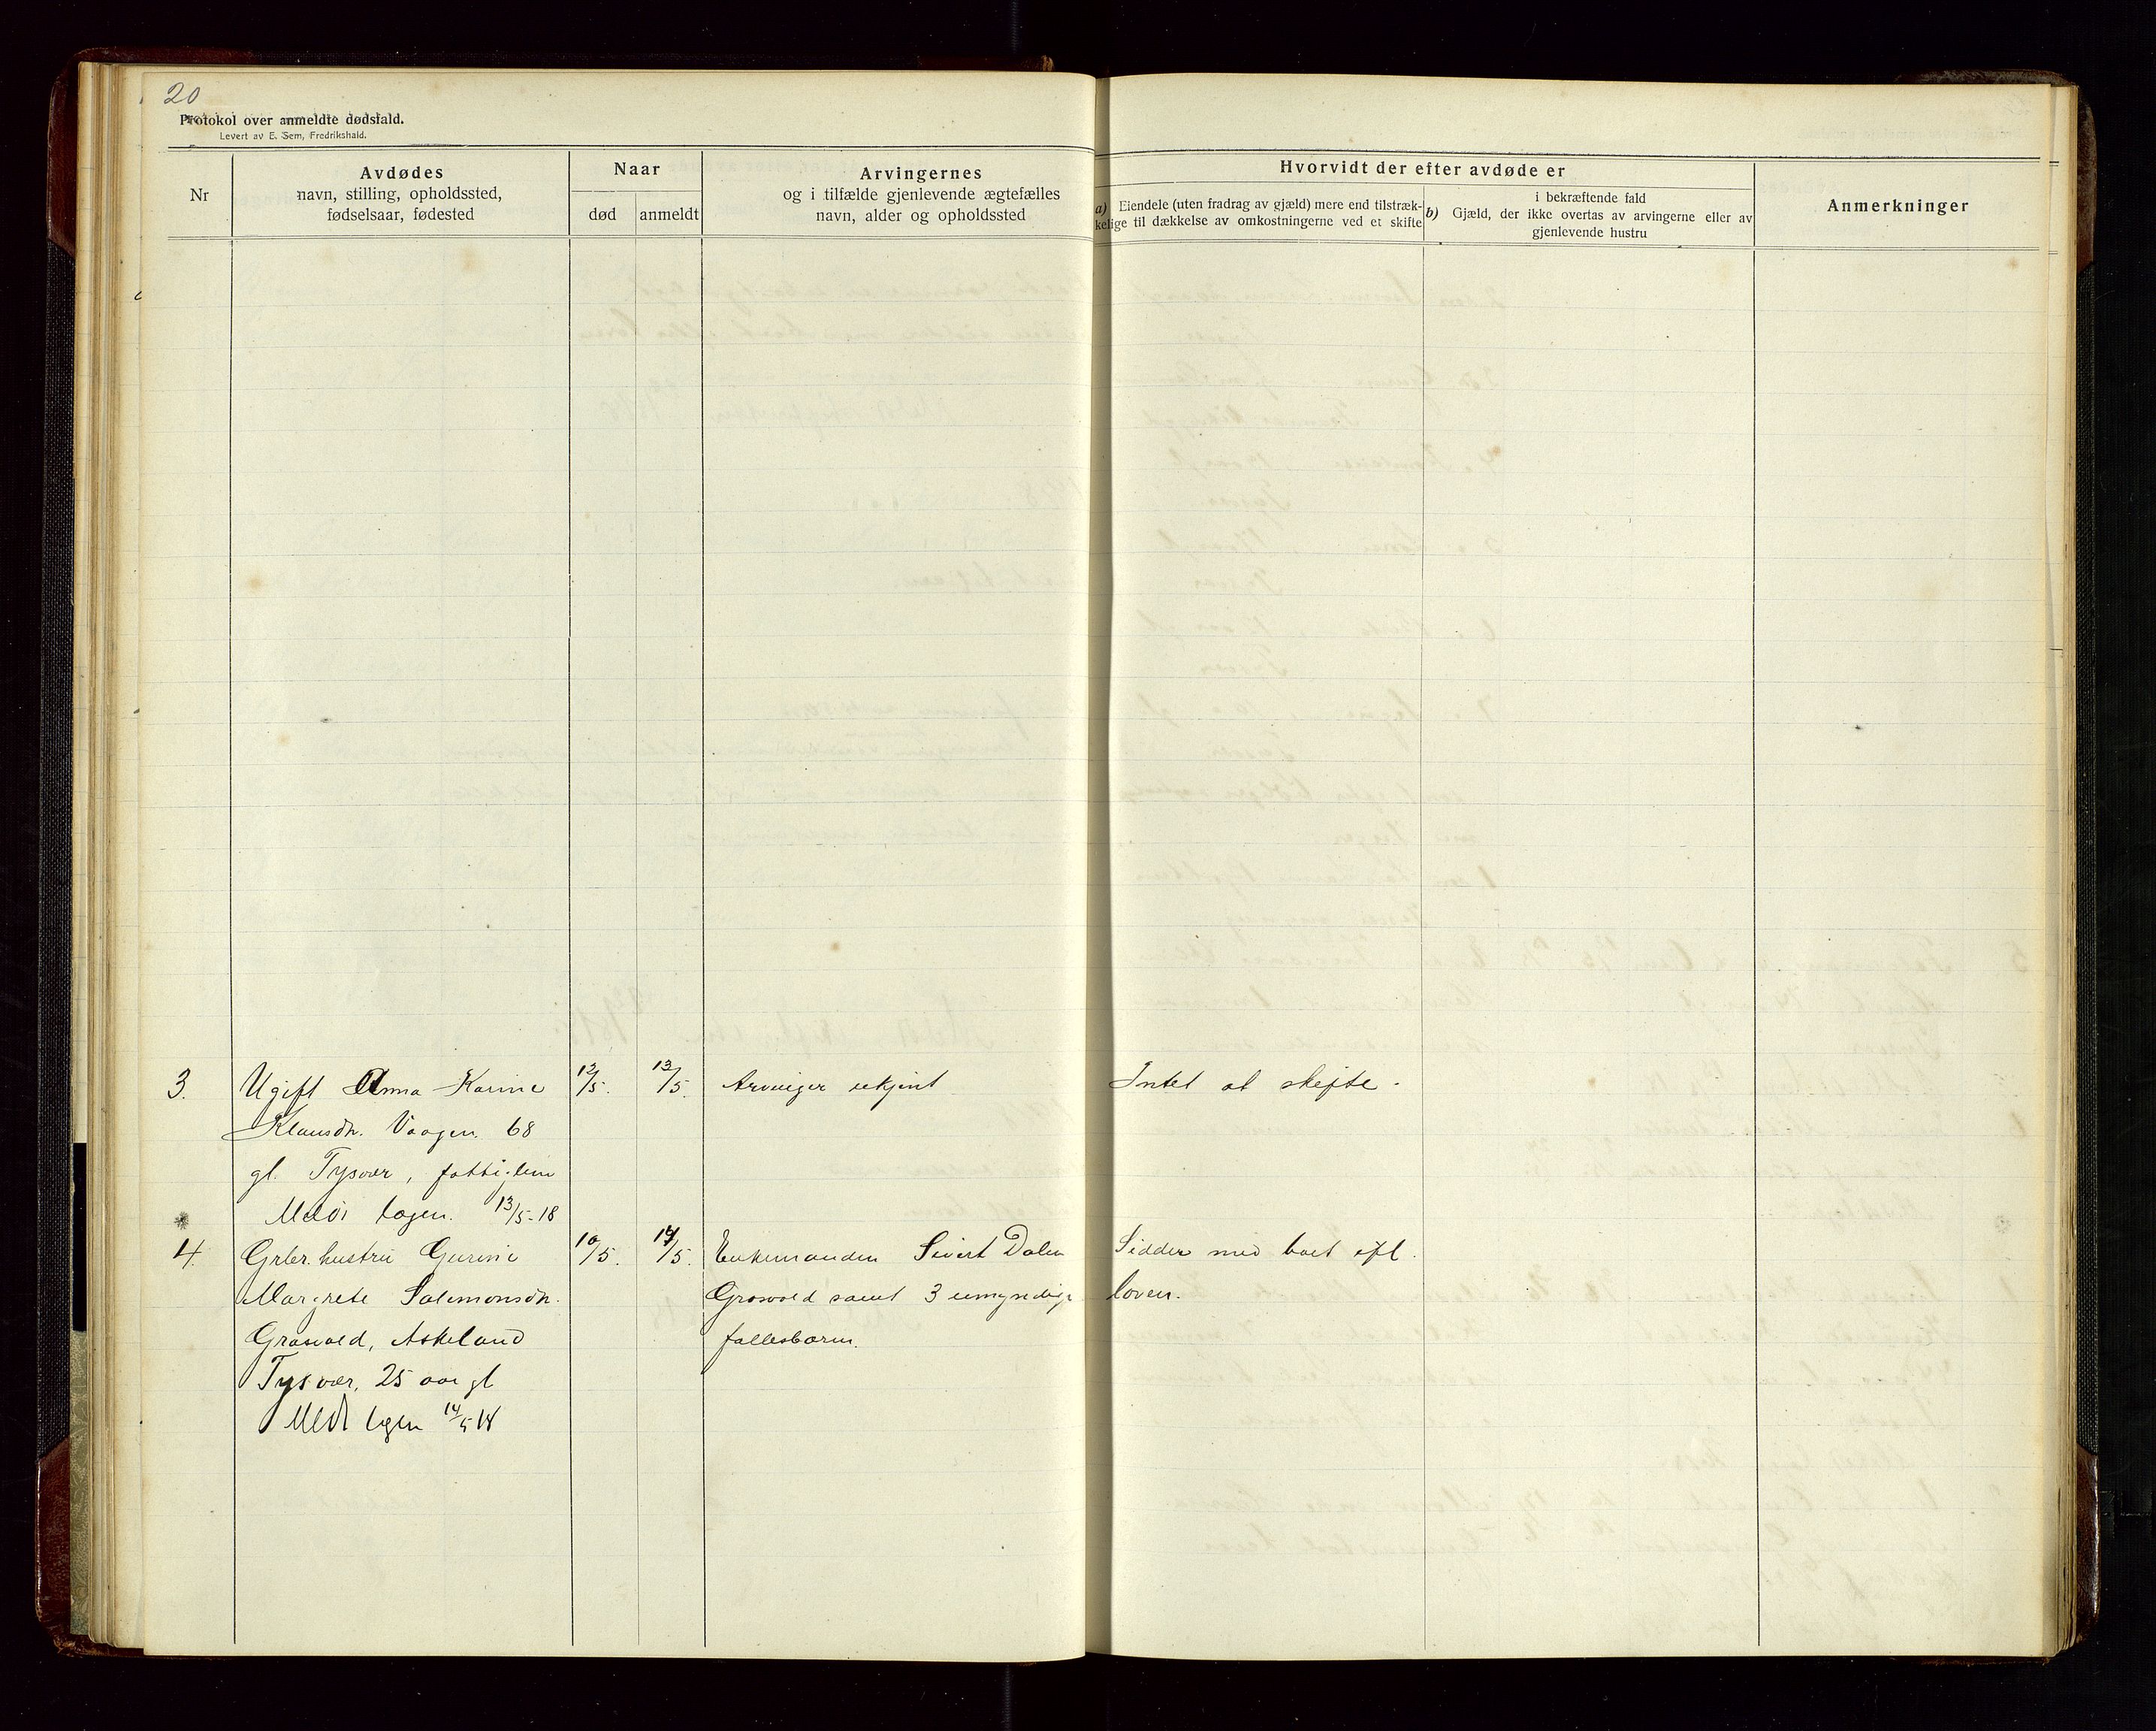 20
Protokol over anmeldte dødsfald.
Levert av E. Sem, Fredrikshald.
Nr
Avdødes
navn, stilling, opholdssted,
fødselsaar, fødested
Naar
død
anmeldt
Arvingernes
og i tilfælde gjenlevende ægtefælles
navn, alder og opholdssted
Hvorvidt der efter avdøde er
a) Eiendele (uten fradrag av gjæld) mere end tilstræk-
kelige til dækkelse av omkostningerne ved et skifte
i bekræftende fald
b) Gjæld, der ikke overtas av arvingerne eller av
gjenlevende hustru
Anmerkninger
3. Ugift Anna Karine 12/5. 13/5. Arvinger ukjent Intet at skifte.
Klausdr. Vaagen. 68
gl. Tysvær, fattiglem
Meddt lægen. 13/5-18
4. Grbr. hustru Gurine 10/5. 14/5. Enkemanden Sivert Dalen Sidder med boet efl.
Margrete Salamonsdr. Grasvold samt 3 umyndige loven.
Grasvold, Askeland fællesbarn.
Tysvær, 25 aar gl
Meddt lægen 14/5 18